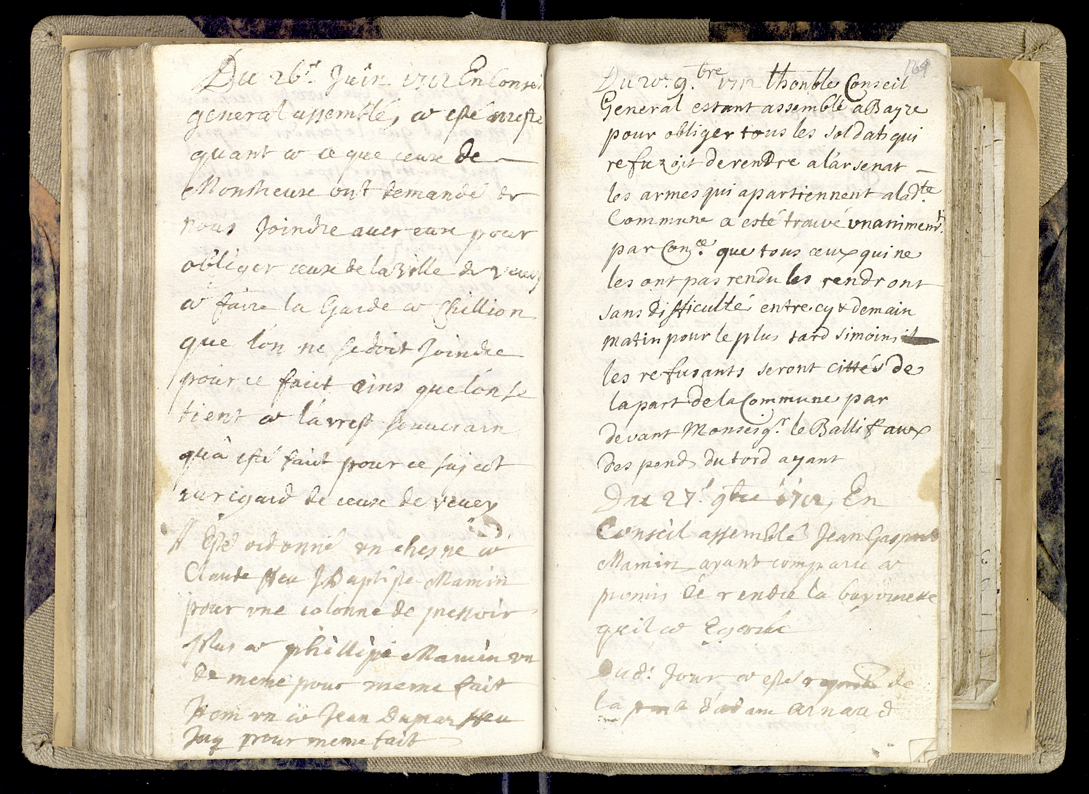 Du 26e. Juin 1712 En Conseil
general assemblés, a esté arresté
quant a ce que ceux de
Monstreux ont demandé de
nous Joindre avec eux pour
obliger ceux de la Ville de Vevey
a faire la Garde a Chillion
que lón ne se doit Joindre
pour ce faict ains que lón se
tient a lárrest souverain
qua esté faict pour ce suject
au regard de ceux de Vevey
Esté ordonné un chesne a
Claude feu J Baptiste Mamin
pour une colonne de pressoir
Plus a phillipe Mamin un
de meme pour meme fait
Item un a Jean Dumar feu
Jaq pour meme fait
164
Du 20e. 9.bre 1712 lhonble Conseil
General estant assemblé a Baye
pour obliger tous les soldats qui
refuzoit de rendre a lársenat
les armes qui apartiennent a la dte
Commune a esté trouvé vnanimemt.
par Con.ce que tous ceux qui ne
les ont pas rendu les rendront
sans difficulté entre cy & demain
matin pour le plus tard si moins
les refusants seront cittés de
la part de la Commune par
devant Monseigr. le Ballif aux
despends du tord ayant
Du 27e. 9bre 1712, En
Conseil assemblé Jean Gaspard
Mamin ayant comparu a
promis de rendre la bayonette
quil a Egarée
Dud. Jour a esté de
la dadam arnaud